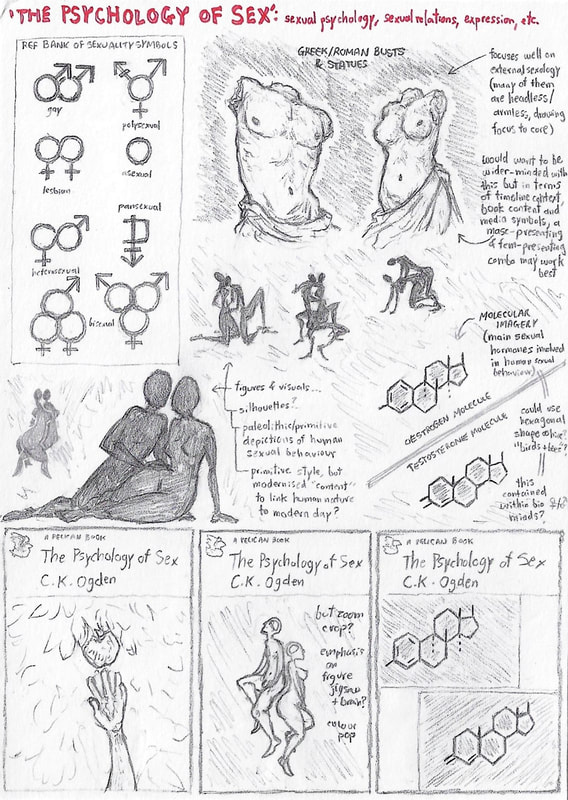 "THE PSYCHOLOGY OF SEX": sexual psychology, sexual relations, expression, etc.
REF BANK OF SEXUALITY SYMBOLS
gay
polysexual
lesbian
asexual
pansexual
heterosexual
bisexual
GREEK/ROMAN BUSTS
& STATUES
focuses well on
external sexology
(many of them
are headless/
armless, drawing
focus to core)
would want to be
wider-minded with
this but in terms
of timeline context,
book content and
media symbols, a
masc-presenting
& fem-presenting
combo may work
best
figures & visuals...
silhouettes?
paleolithic/primitive
depictions of human
sexual behaviour
primitive style, but
modernised "content"
to link human nature
to modern day?
MOLECULAR
IMAGERY
(main sexual
hormones involved
in human sexual
behaviour)
OESTROGEN MOLECULE
TESTOSTERONE MOLECULE
could use
hexagonal
shape
"birds + bees"?
this
contained
within bio
minds?
A PELICAN BOOK
The Psychology of Sex
C.K. Ogden
A PELICAN BOOK
The Psychology of Sex
C.K. Ogden
but zoom
crop?
emphasis
on
figure
jigsaw
+ brain?
colour
pop
A PELICAN BOOK
The Psychology of Sex
C.K. Ogden